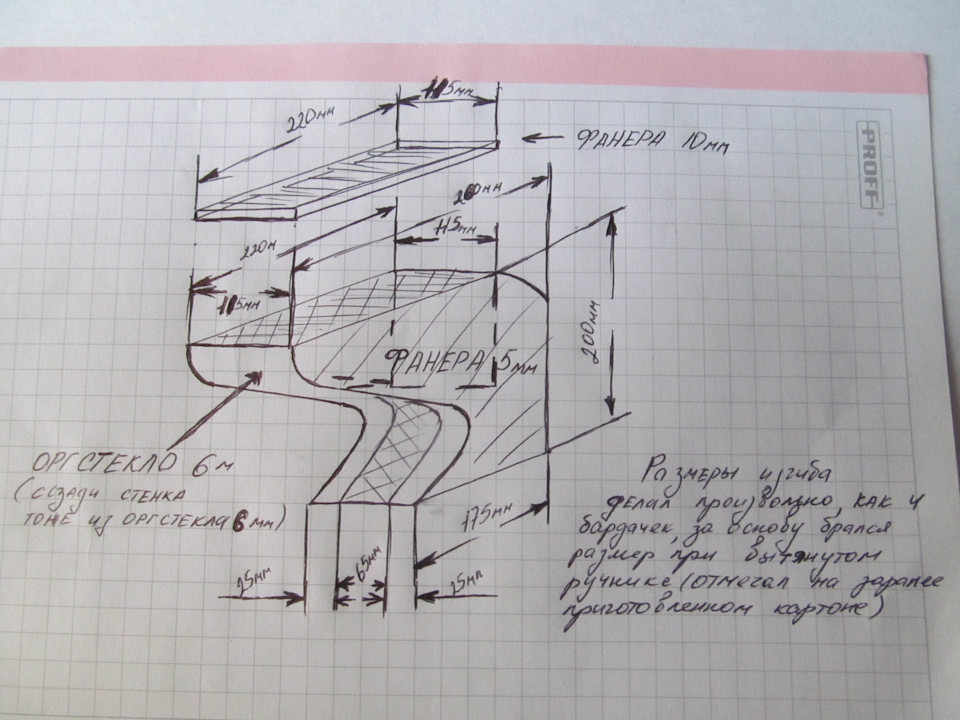 115мм
220мм
ФАНЕРА 10мм
PROFF
260мм
220м
115мм
115мм
200мм
ФАНЕРА 5мм
ОРГСТЕКЛО 6м
(сзади стенка
тоже из оргстекла 6мм)
Размеры изгиба
делал произвольно, как и
бардачек, за основу брался
размер при вытянутом
ручнике (отмечал на заранее
приготовленном картоне)
175мм
25мм
65мм
25мм